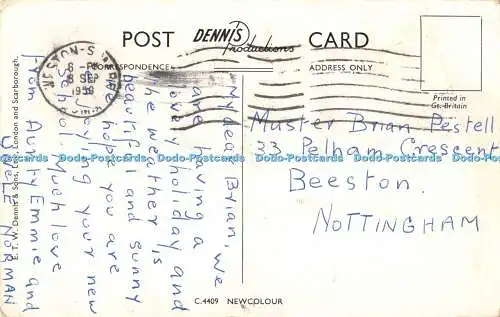 POST DENNIS Productions CARD
CORRESPONDENCE
ADDRESS ONLY
Printed in
Gt. Britain
6 - PM
8 SEP
1958
My dear Brian, we
are having a
lovely holiday and
the weather is
beautiful and sunny
we hope you are
your new
School. Much love
from Aunty Emmie and
Uncle Norman
Master Brian Pestell
33 Pelham Crescent
Beeston.
NOTTINGHAM
E. T. W. Dennis & Sons, Ltd., London and Scarborough.
C.4409 NEWCOLOUR
Dodo-Postcards Dodo-Postcards Dodo-Postcards Dodo-Postcards Dodo-Postcards Dodo-Postcards